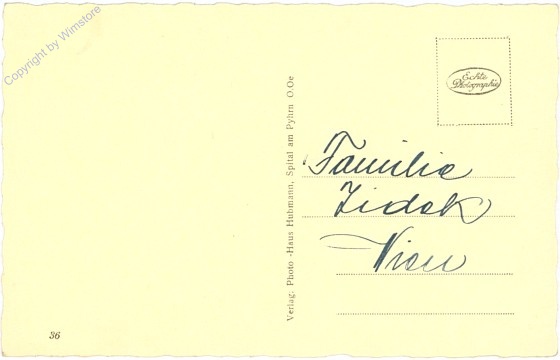 Copyright by Wimstore
Echte
Photographie
Verlag: Photo-Haus Huhmann, Spital am Pyhrn O.Oe
Familie
Zidek
Wien
36